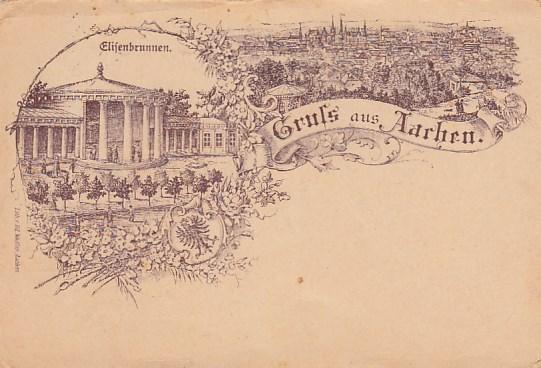 Elisenbrunnen.
Gruſs aus Aachen.